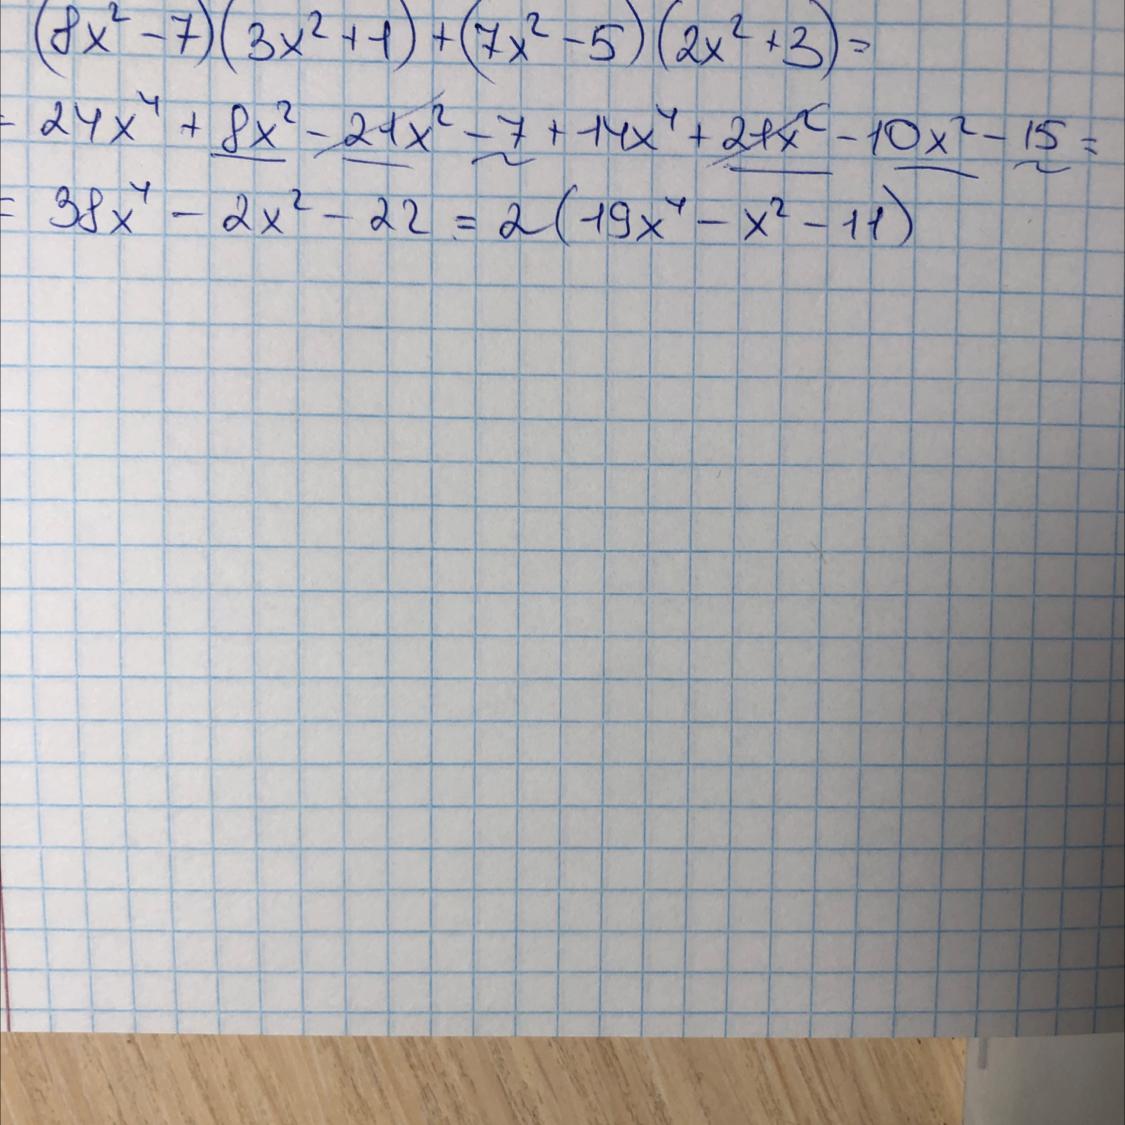 (8x² - 7)(3x² + 1) + (7x² - 5)(2x² + 3) =
= 24x⁴ + 8x² - 21x² - 7 + 14x⁴ + 21x² - 10x² - 15 =
= 38x⁴ - 2x² - 22 = 2(19x⁴ - x² - 11)